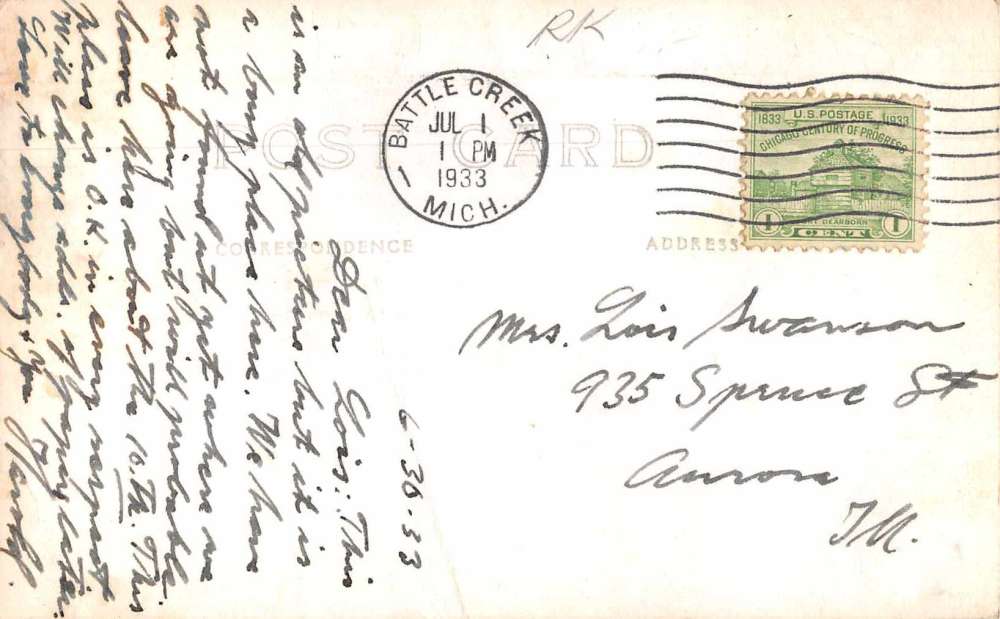 RK
BATTLE CREEK
JUL 1
1 PM
1933
MICH.
1833 U.S. POSTAGE 1933
CHICAGO CENTURY OF PROGRESS
FORT DEARBORN
1 CENT 1
POST CARD
CORRESPONDENCE
ADDRESS
Mrs. Lois Swanson
935 Spruce St
Aurora
Ill.
6-30-33
Dear Lois: This
is an old picture but it is
a bony place here. We have
not found out yet where we
are going but will probable
leave here about the 10.th. This
place is O.K. in every respect
Will change adds. of paper later.
Love to everybody & you